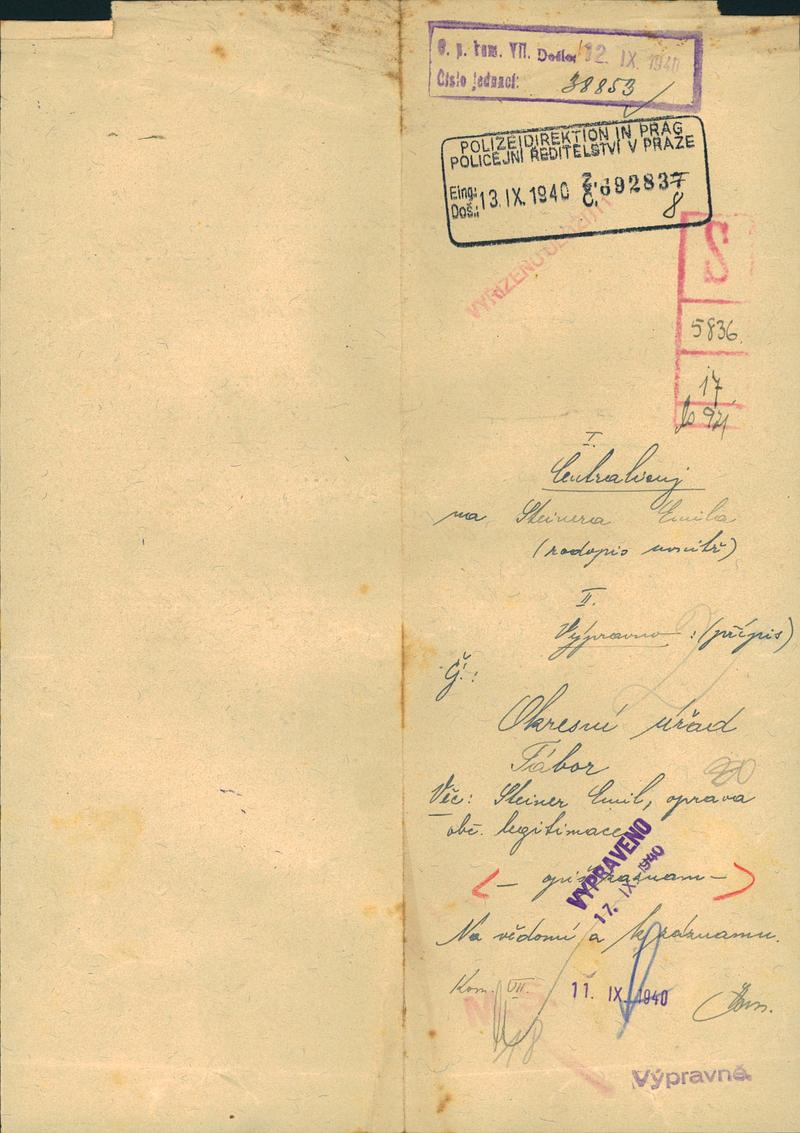 O. p. kom. VII. Došlo: 12. IX. 1940
Číslo jednací: 38853
POLIZEIDIREKTION IN PRAG
POLICEJNÍ ŘEDITELSTVÍ V PRAZE
Eing.:
Doš.: 13. IX. 1940 Z. Č. 692837
8
VYŘÍZENO
S
5836
17
I.
na Steinera Emila
(rodopis uvnitř)
II.
Výpravno: (přípis)
Č.:
Okresní úřad
Tábor
Věc: Steiner Emil, oprava
obč. legitimace
VYPRAVENO
17. IX. 1940
Na vědomí a k záznamu.
Kom. VII. 11. IX. 1940
Výpravně.